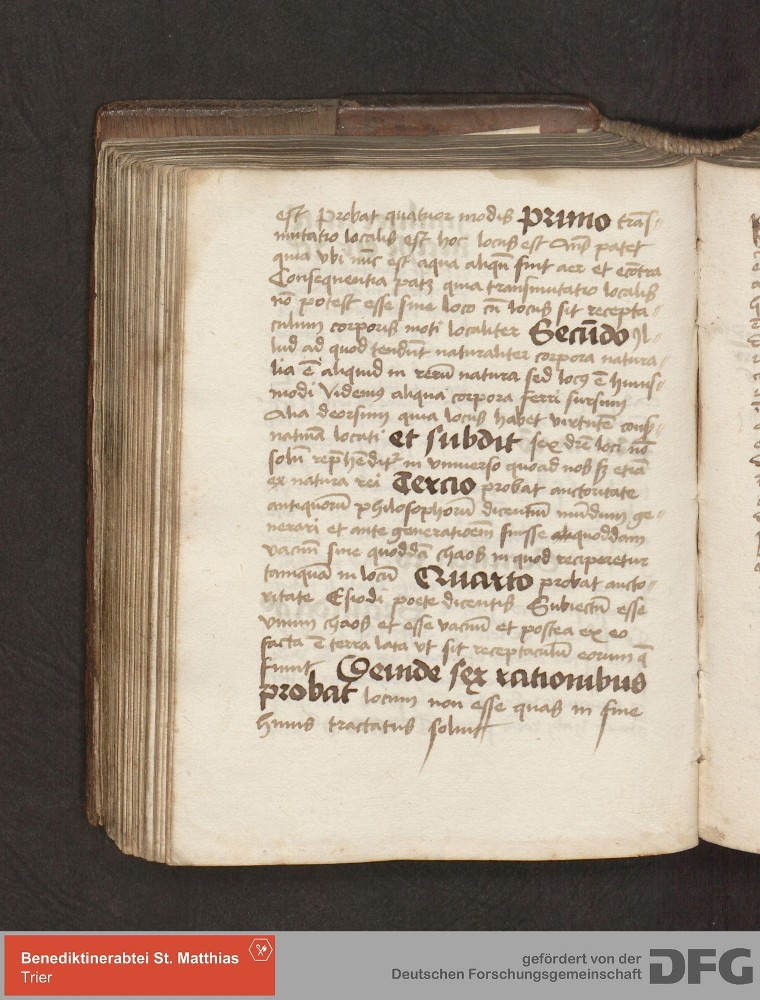 est Probat quatuor modis Primo trāſ-
mutatio localis est hoc locus est Añs patet
quia vbi nūc est aqua aliqñ fuit aer et ecōtra
Consequentia patꝫ quia transmutatio localis
nō potest esse sine loco cū locus sit recepta-
culum corporis moti localiter Secūdo Il-
lud ad quod tendūt naturaliter corpora natura-
lia ē aliquid in rerū natura sed locꝰ ē huius-
modi Videmꝰ aliqua corpora ferri sursum
Alia deorsum quia locus habet virtutē
natiuā locati et subdit sex drē loci nō
solū in vniuerso quoad nos sꝫ etiā
ex natura rei Tercio probat auctoritate
antiquorū philosophorū dicentiū mūdum ge-
nerari et ante generationem fuisse quoddam
vacuū siue quoddā chaos in quod reciperetur
tamquā in locū Quarto probat aucto-
ritate Esiodi poete dicentis Subiectū esse
vnum chaos et esse vacuū et postea ex eo
facta ē terra lata vt sit receptaculū eorum q̄
fiunt Deinde sex rationibus
probat locum non esse quas in fine
huius tractatus soluit
Benediktinerabtei St. Matthias
Trier
gefördert von der
Deutschen Forschungsgemeinschaft DFG